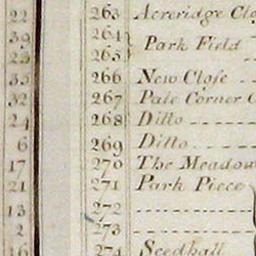 22 263 Acreridge Clo
39 264
Park Field
23 265
35 266 New Close
32 267 Pale Corner C
24 268 Ditto
6 269 Ditto
17 270 The Meadow
21 271 Park Piece
13 272
2 273
16 274 Seedhall